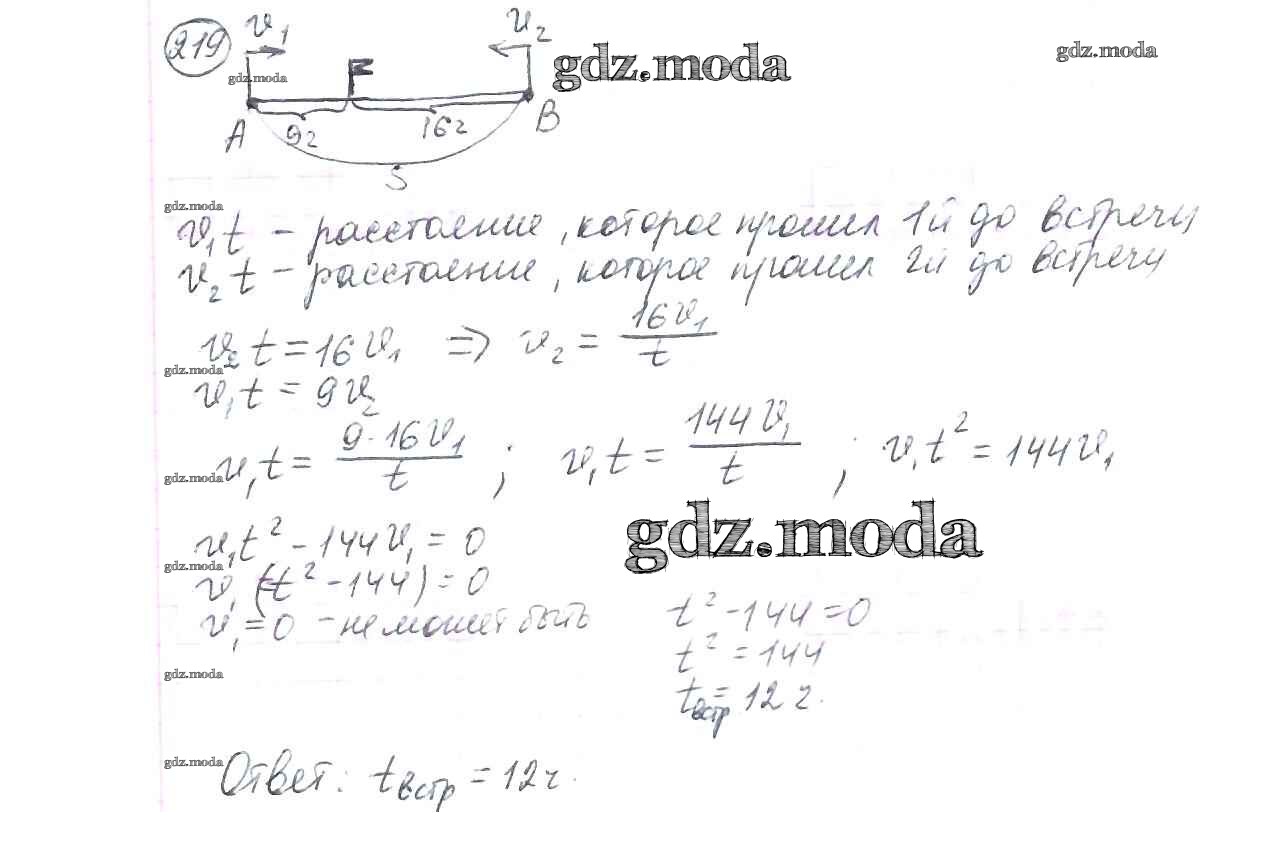 219 v₁ v₂
gdz.moda gdz.moda gdz.moda
A 9ч 16ч B
S
gdz.moda
v₁t – расстояние, которое прошел 1й до встречи
v₂t – расстояние, которое прошел 2й до встречи
v₂t = 16v₁ ⇒ v₂ = 16v₁/t
gdz.moda
v₁t = 9v₂
gdz.moda v₁t = 9·16v₁/t ; v₁t = 144v₁/t ; v₁t² = 144v₁
gdz.moda
v₁t² – 144v₁ = 0
gdz.moda
v₁(t² – 144) = 0
v₁ = 0 – не может быть t² – 144 = 0
t² = 144
gdz.moda
tвстр = 12 ч.
gdz.moda Ответ: tвстр = 12ч.